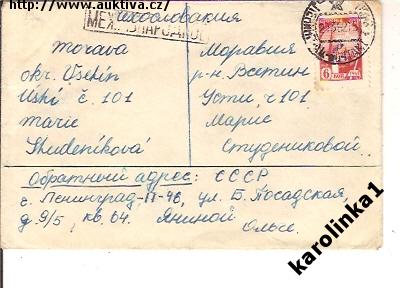 http://www.auktiva.cz/
Чехословакия
МЕЖДУНАРОДНОЕ
Morava
okr. Vsetín
Ústí č. 101
Marie
Studeníková
Моравия
р-н Всетин
Усти, ч 101
Марие
Студениковой
Обратный адрес: СССР
г. Ленинград-П-46, ул. Б. Посадская,
д. 9/5, кв. 64. Яниной
Ольге.
karolinka1